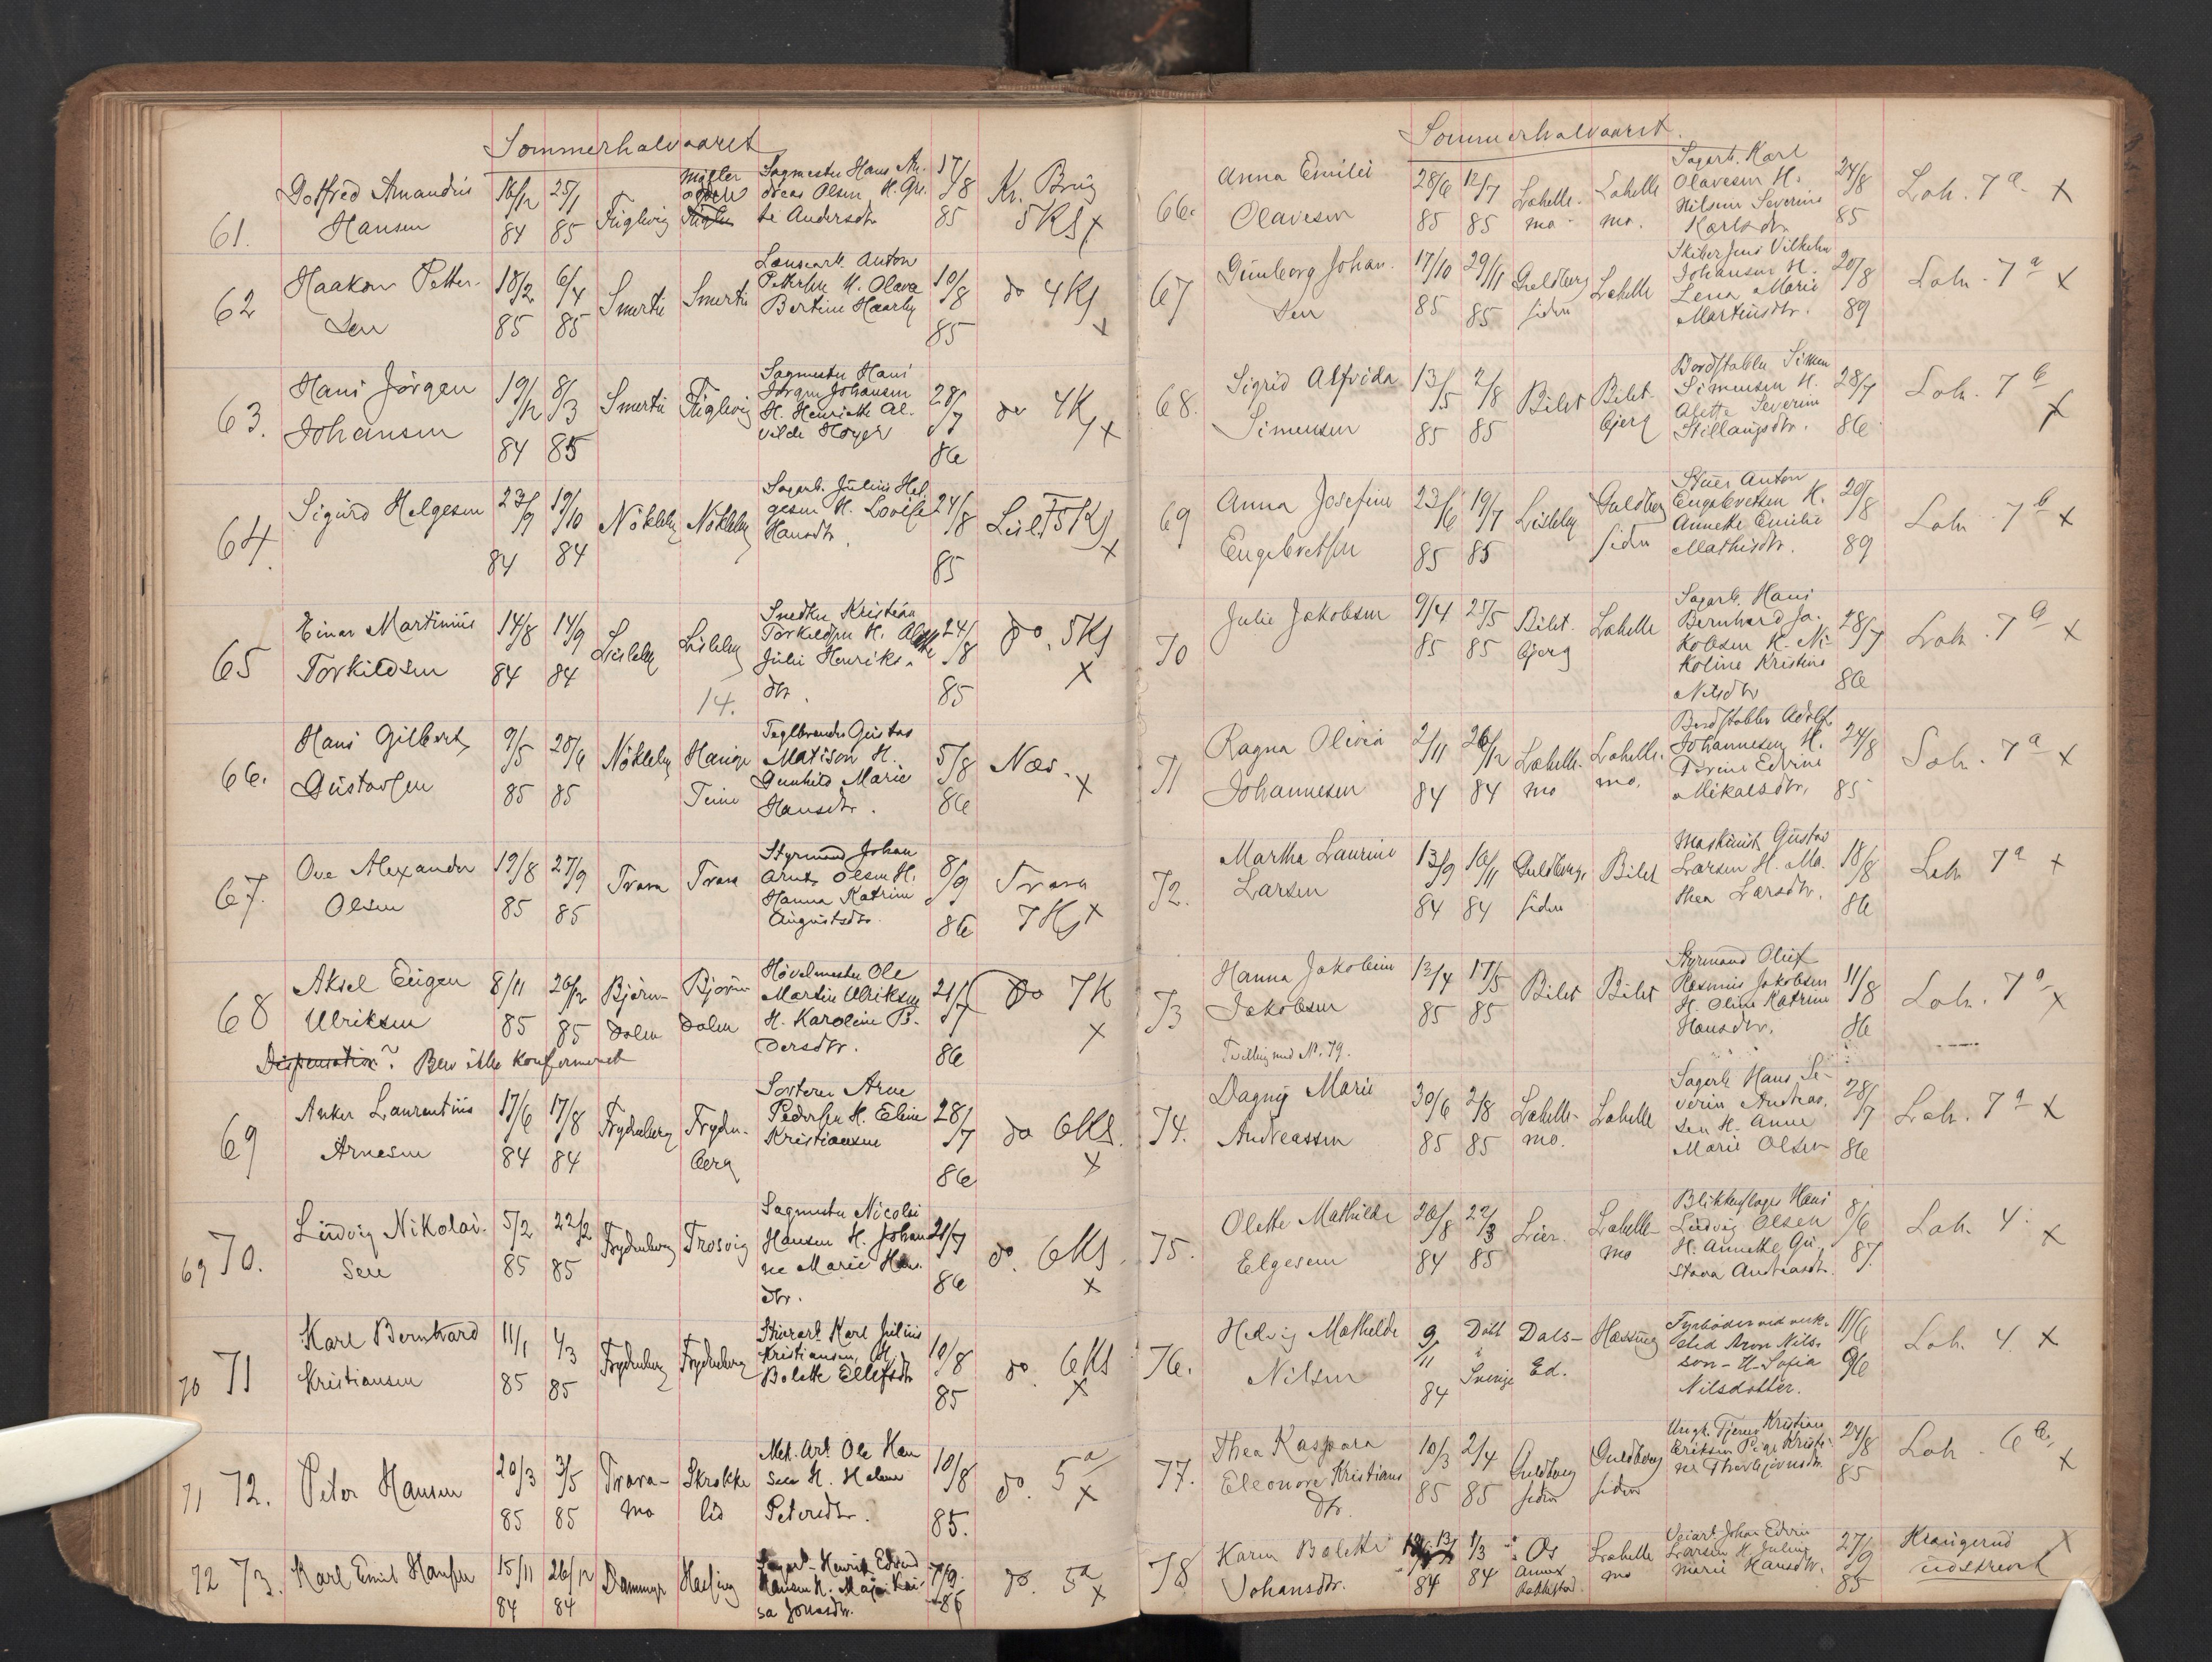 Sommerhalvaaret
61. Gotfred Amandus Hansen 16/12 84 25/1 85 Figlevig Møller odden Sagmester Hans An- dreas Olsen H. Gri- te Andersdtr 17/8 85 Kr. Brug 5 Kl x
62 Haakon Petter- sen 18/2 85 6/4 85 Smertu Smertu Anton Pettersen H. Olava Bertine Haarby 10/8 85 do 4 Kl x
63. Hans Jörgen Johansen 19/12 84 8/3 85 Smertu Figlevig Sagmester Hans Jörgen Johansen H. Henriette Al- vilde Hoyer 28/7 86 do 4 Kl x
64. Sigurd Helgesen 23/9 84 19/10 84 Nökleby Nökleby Sagarb. Julius Hel- gesen H. Lovise Hansdtr. 24/8 85 Lisl. 5 Kl x
65 Einar Martinius Torkildsen 14/8 84 14/9 84 Lisleby Lisleby 14. Snedker Kristian Torkildsen H. Julie Henriks- dtr. 24/8 85 do. 5 Kl x
66. Hans Gilbert Gustavsen 9/5 85 28/6 85 Nökleby Hauge Teine Teglbrender Gustav Matison H. Gunhild Marie Hansdtr. 5/8 86 Næs. x
67. Ove Alexander Olsen 19/8 85 27/9 85 Trara Trara Styrmand Johan Arnt Olsen H. Hanna Katrine Augustsdtr 8/9 86 Trara 7 Kl x
68 Aksel Eugen Ulriksen 8/11 85 26/12 85 Björn- dalen Björn- dalen Hövelmester Ole Martin Ulriksen H. Karoline P. dersdtr. 21/7 86 do 7 K x
Dispensation? Blev ikke konfirmeret
69 Anker Laurentius Arnesen 17/6 84 17/8 84 Frydenberg Fryden- berg Sorterer Arne Pedersen H. Eline Kristiansen 28/7 86 do 6 Kl. x
69 70. Ludvig Nikolai- sen 5/2 85 22/2 85 Frydenberg Trosvig Sagmester Nicolai Hansen H. Johan ne Marie Hans dtr. 21/7 86 do. 6 Kl. x
70 71 Karl Bernhard Kristiansen 11/1 85 4/3 85 Frydenberg Frydenberg Karl Julius Kristiansen, H. Bolette Ellefsdtr 10/8 85 do. 6 Kl x
71 72. Peter Hansen 20/3 85 3/5 85 Trara- mo Skrokke lid Mek. Arb. Ole Han sen H. Helene Petersdtr. 10/8 85. do. 5 a x
72 73. Karl Emil Hansen 15/11 84 26/12 84 Dammyr Hassing Sagarb. Henrik Edvard Hansen H. Maja Kai- sa Jonasdtr. 7/9 86 do. 5 a x
Sommerhalvaaret.
66. Anna Emilie Olavesen 28/6 85 12/7 85 Lahelle- mo Lahelle mo. Sagarb. Karl Olavesen H. Nilsine Severine Karlsdtr 24/8 85 Lah. 7 a x
67 Gunborg Johan- sen 17/10 85 29/11 85 Guldberg siden Lahelle Skiber Jens Vilhelm Johansen H. Lena Marie Martinsdtr. 20/8 89 Lah. 7 a x
68. Sigrid Alfrida Simensen 13/5 85 2/8 85 Bilet Bilet- bjerg Bordstabler Simen Simensen H. Alette Severine Stillaugsdtr. 28/7 86 Lah. 7 b x
69 Anna Josefine Engebretsen 23/6 85 19/7 85 Lisleby Guldberg siden Stuer Anton Engebretsen H. Annette Emilie Mathisdtr. 20/8 89 Lah 7 b x
70 Julie Jakobsen 9/4 85 25/5 85 Bilet- bjerg Lahelle Sagarb. Hans Bernhard Ja- kobsen H. Ni- koline Kristine Nilsdtr 28/7 86 Lah. 7 b x
71 Ragna Olivia Johannesen 2/11 84 26/12 84 Lahelle- mo Lahelle- mo. Bordstabler Adolf Johannesen H. Torine Edvine Mikalsdtr. 24/8 85 Lah. 7 a x
72. Martha Laurine Larsen 13/9 84 16/11 84 Guldberg- siden Bilet Maskinist Gustav Larsen H. Ma- thea Larsdtr. 18/8 86 Lah 7 a x
73 Hanna Jakobine Jakobsen 13/4 85 17/5 85 Bilet Bilet Styrmand Oluf Rasmus Jakobsen H. Oline Katrine Hansdtr. 11/8 86 Lah. 7 a x
Tvilling med No. 79.
74. Dagny Marie Andreassen 30/6 85 2/8 85 Lahelle- mo. Lahelle Sagarb. Hans Se- verin Andreas- sen H. Anne Marie Olsen 28/7 86 Lah. 7 a x
75. Olette Mathilde Elgesen 26/8 84 22/3 85 Lier. Lahelle- mo Blikkenslager Hans Ludvig Olsen H. Annette Gu- stava Andreasdtr. 8/6 87. Lah. 4. x
76. Hedvig Mathilde Nilsen 9/11 84 Döbt i Sverige Dals- Ed. Hassing Fyrböder ved Aron Nils- son - H. Sofia Nilsdotter. 11/6 96 Lah. 4. x
77. Thea Kaspara Eleonore Kristians dtr. 10/3 85 2/4 85 Guldberg siden Guldberg siden Ungk. Tjener Kristian Eriksen Pige Kristi- ne Thorbjörnsdtr. 24/8 85 Lah. 6 b. x
78 Karen Bolette Johansdtr. 84 1/3 84 Os Annex Rakkestad. Lahelle mo Veiarb. Johan Edvin Larsen H. Juline Marie Hansdtr. 27/9 85 Haugerud x
udstrenk